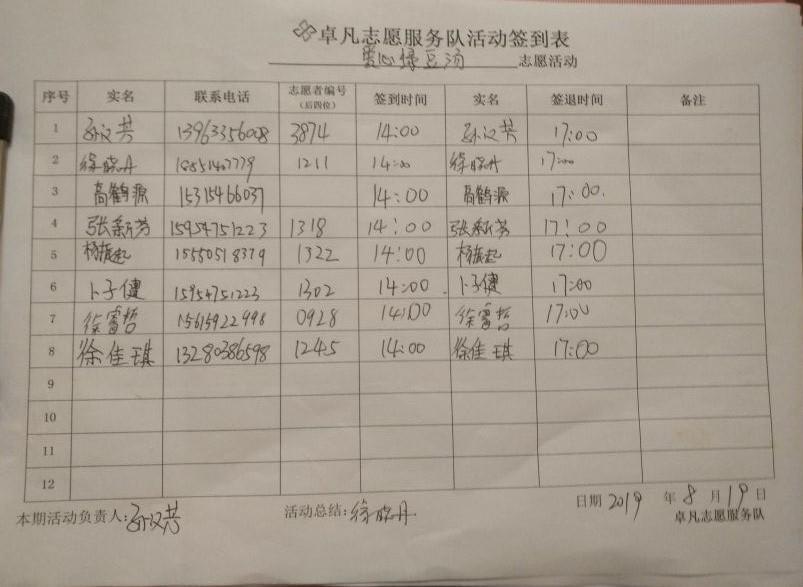 卓凡志愿服务队活动签到表
爱心绿豆汤 志愿活动
序号 实名 联系电话 志愿者编号（后四位） 签到时间 实名 签退时间 备注
1 孙汉芸 13963356008 3874 14:00 孙汉芸 17:00
2 徐晓丹 1211 14:00 徐晓丹 17:00
3 高鹤源 15315466037 14:00 高鹤源 17:00.
4 张新芳 15954751223 1318 14:00 张新芳 17:00
5 杨振起 15550518379 1322 14:00 杨振起 17:00
6 卜子健 15954751223 1302 14:00. 卜子健 17:00
7 徐富哲 15615922998 0928 14:00 徐富哲 17:00
8 徐佳琪 13280386598 1245 14:00 徐佳琪 17:00
9
10
11
12
日期 2019 年 8 月 19 日
本期活动负责人:孙汉芸 活动总结:徐晓丹 卓凡志愿服务队